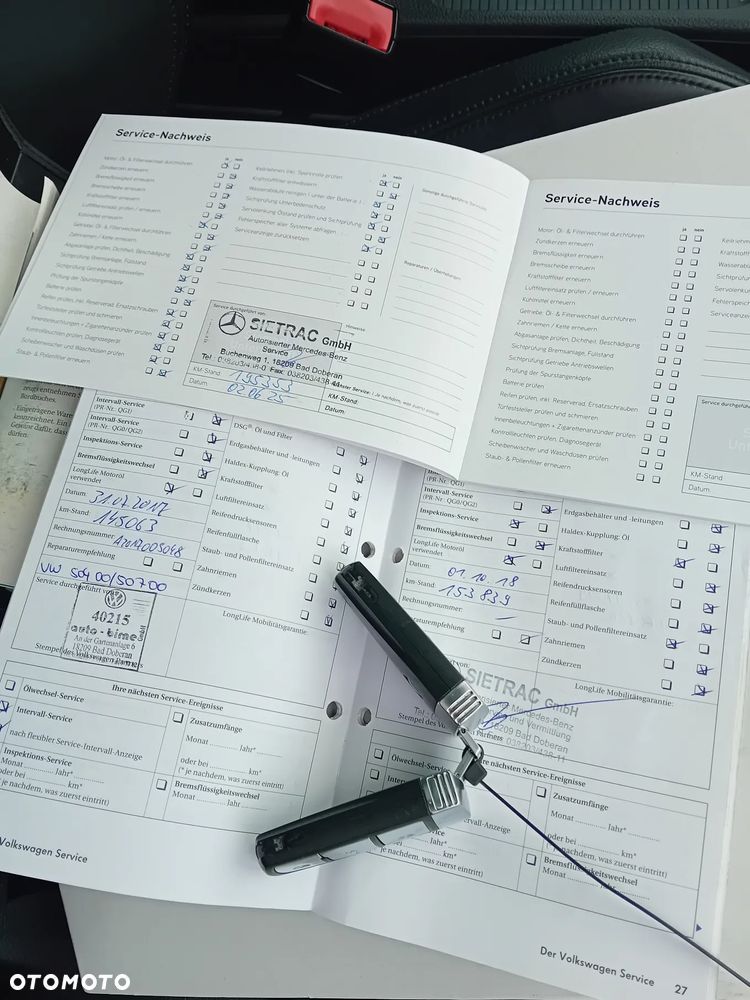 Service-Nachweis
ja nein
Motor: Öl- & Filterwechsel durchführen
Zündkerzen erneuern
Bremsflüssigkeit erneuern
Bremsscheibe erneuern
Kraftstofffilter erneuern
Luftfiltereinsatz prüfen / erneuern
Kühlmittel erneuern
Getriebe: Öl- & Filterwechsel durchführen
Zahnriemen / Kette erneuern
Abgasanlage prüfen, Dichtheit, Beschädigung
Sichtprüfung Bremsanlage, Füllstand
Sichtprüfung Getriebe Antriebswellen
Prüfung der Spurstangenköpfe
Batterie prüfen
Reifen prüfen, inkl. Reserverad, Ersatzschrauben
Türfeststeller prüfen und schmieren
Innenbeleuchtungen + Zigarettenanzünder prüfen
Kontrollleuchten prüfen, Diagnosegerät
Scheibenwischer und Waschdüsen prüfen
Staub- & Pollenfilter erneuern
ja nein
Keilriemen, inkl. Spannrolle prüfen
Kraftstofffilter entwässern
Wasserabläufe reinigen / unter der Batterie
Sichtprüfung Unterbodenschutz
Servolenkung Ölstand prüfen und Sichtprüfung
Fehlerspeicher aller Systeme abfragen
Serviceanzeige zurücksetzen
Sonstige durchgeführte Services:
Reparaturen / Überholungen:
Service durchgeführt von:
Hinweise
SIETRAC GmbH
Autorisierter Mercedes-Benz
Service
Buchenweg 1, 18209 Bad Doberan
Tel. 038203/438-0 Fax: 038203/438-11
KM-Stand: 195353
Datum: 02.06.25
Nächster Service: (je nachdem, was zuerst eintritt)
KM-Stand:
Datum:
Service-Nachweis
ja nein
Motor: Öl- & Filterwechsel durchführen
Zündkerzen erneuern
Bremsflüssigkeit erneuern
Bremsscheibe erneuern
Kraftstofffilter erneuern
Luftfiltereinsatz prüfen / erneuern
Kühlmittel erneuern
Getriebe: Öl- & Filterwechsel durchführen
Zahnriemen / Kette erneuern
Abgasanlage prüfen, Dichtheit, Beschädigung
Sichtprüfung Bremsanlage, Füllstand
Sichtprüfung Getriebe Antriebswellen
Prüfung der Spurstangenköpfe
Batterie prüfen
Reifen prüfen, inkl. Reserverad, Ersatzschrauben
Türfeststeller prüfen und schmieren
Innenbeleuchtungen + Zigarettenanzünder prüfen
Kontrollleuchten prüfen, Diagnosegerät
Scheibenwischer und Waschdüsen prüfen
Staub- & Pollenfilter erneuern
Service durchgeführt
KM-Stand:
Datum:
Bordbuches.
Eingetragene Ware
kennzeichnet. Ein
Gewähr dafür, dass
dürfen.
Intervall-Service
(PR-Nr. QG1)
Intervall-Service
(PR-Nr. QG0/QG2)
Inspektions-Service
Bremsflüssigkeitswechsel
LongLife Motoröl
verwendet
Datum: 31.07.2017
km-Stand: 145063
Rechnungsnummer:
Reparaturempfehlung
VW 50400/50700
Service durchgeführt von:
40215
auto-bime
An der Gartenanlage 6
18209 Bad Doberan
Stempel des Volkswagen Partners
DSG® Öl und Filter
Erdgasbehälter und -leitungen
Haldex-Kupplung: Öl
Kraftstofffilter
Luftfiltereinsatz
Reifendrucksensoren
Reifenfüllflasche
Staub- und Pollenfiltereinsatz
Zahnriemen
Zündkerzen
LongLife Mobilitätsgarantie:
Ihre nächsten Service-Ereignisse
Ölwechsel-Service
Intervall-Service
nach flexibler Service-Intervall-Anzeige
Inspektions-Service
Monat Jahr*
oder bei km*
(* je nachdem, was zuerst eintritt)
Zusatzumfänge
Monat Jahr*
oder bei km*
(* je nachdem, was zuerst eintritt)
Bremsflüssigkeitswechsel
Monat Jahr
Volkswagen Service
Intervall-Service
(PR-Nr. QG0/QG2)
Inspektions-Service
Bremsflüssigkeitswechsel
LongLife Motoröl
verwendet
Datum: 01.10.18
km-Stand: 153839
Rechnungsnummer:
Reparaturempfehlung
SIETRAC GmbH
Mercedes-Benz
und Vermittlung
18209 Bad Doberan
038203/438-11
Stempel des Partners
Erdgasbehälter und -leitungen
Haldex-Kupplung: Öl
Kraftstofffilter
Luftfiltereinsatz
Reifendrucksensoren
Reifenfüllflasche
Staub- und Pollenfiltereinsatz
Zahnriemen
Zündkerzen
LongLife Mobilitätsgarantie:
nächsten Service-Ereignisse
Ölwechsel-Service
Zusatzumfänge
Monat Jahr*
oder bei km*
(* je nachdem, was zuerst eintritt)
Bremsflüssigkeitswechsel
Monat Jahr
je nachdem, was zuerst eintritt)
Der Volkswagen Service 27
OTOMOTO